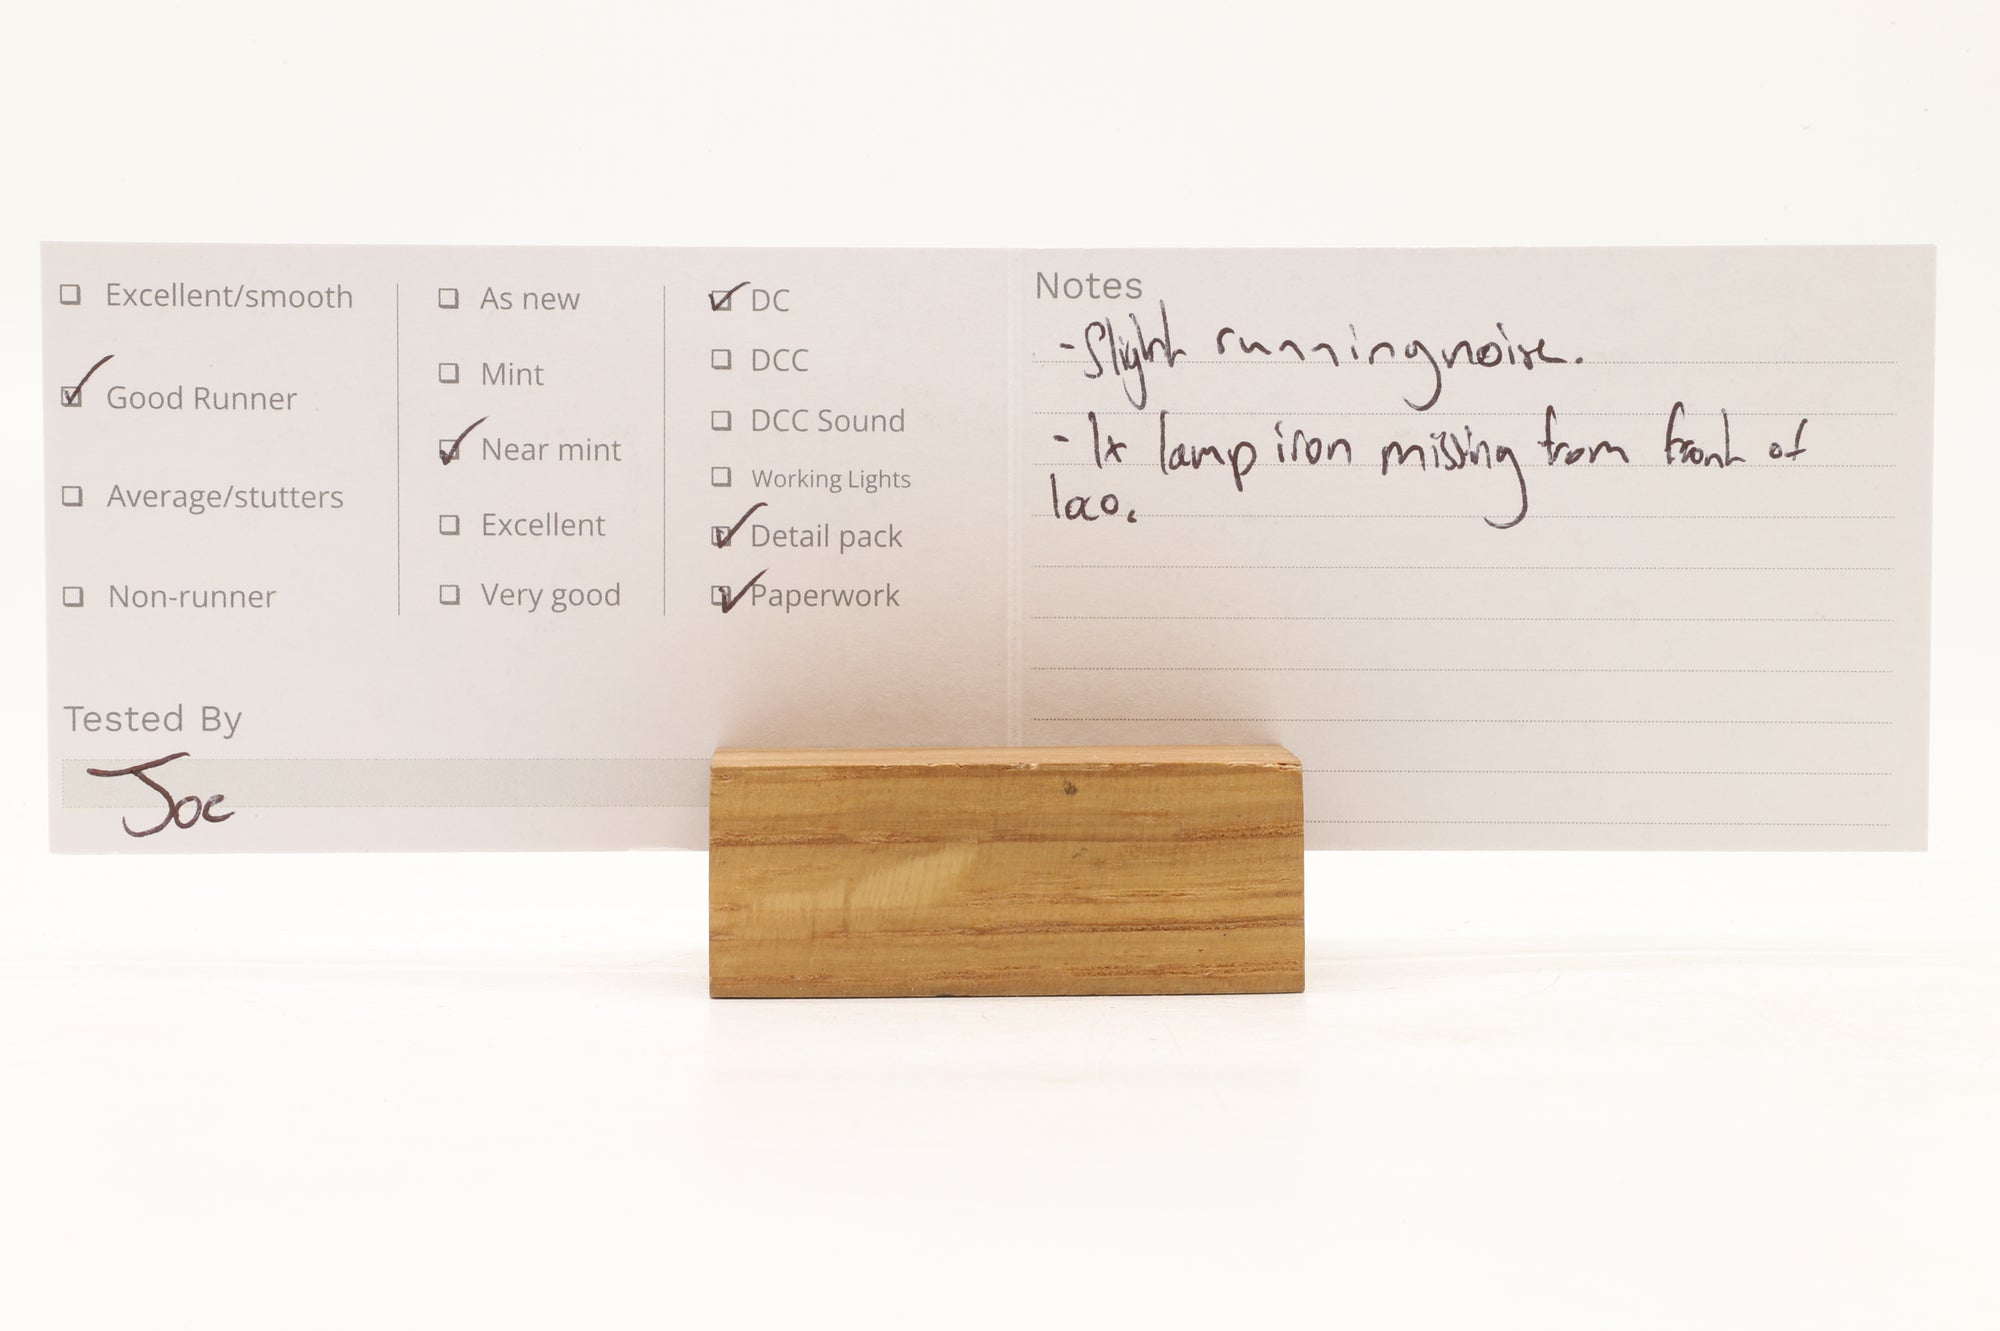 ☐ Excellent/smooth
☑ Good Runner
☐ Average/stutters
☐ Non-runner
☐ As new
☐ Mint
☑ Near mint
☐ Excellent
☐ Very good
☑ DC
☐ DCC
☐ DCC Sound
☐ Working Lights
☑ Detail pack
☑ Paperwork
Tested By
Joe
Notes
- Slight running noise.
- 1x lamp iron missing from front of
loco.